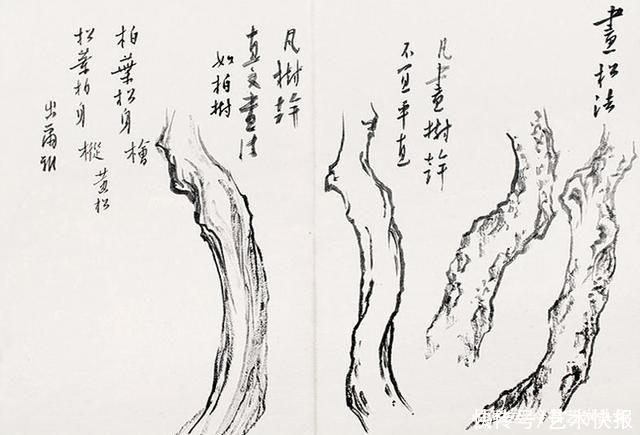 畫松法
凡畫樹幹
不宜平直
凡樹幹
直文畫法
如柏樹
柏葉松身 檜
松葉柏身 樅 黃松
出爾雅
快传号/艺术快报